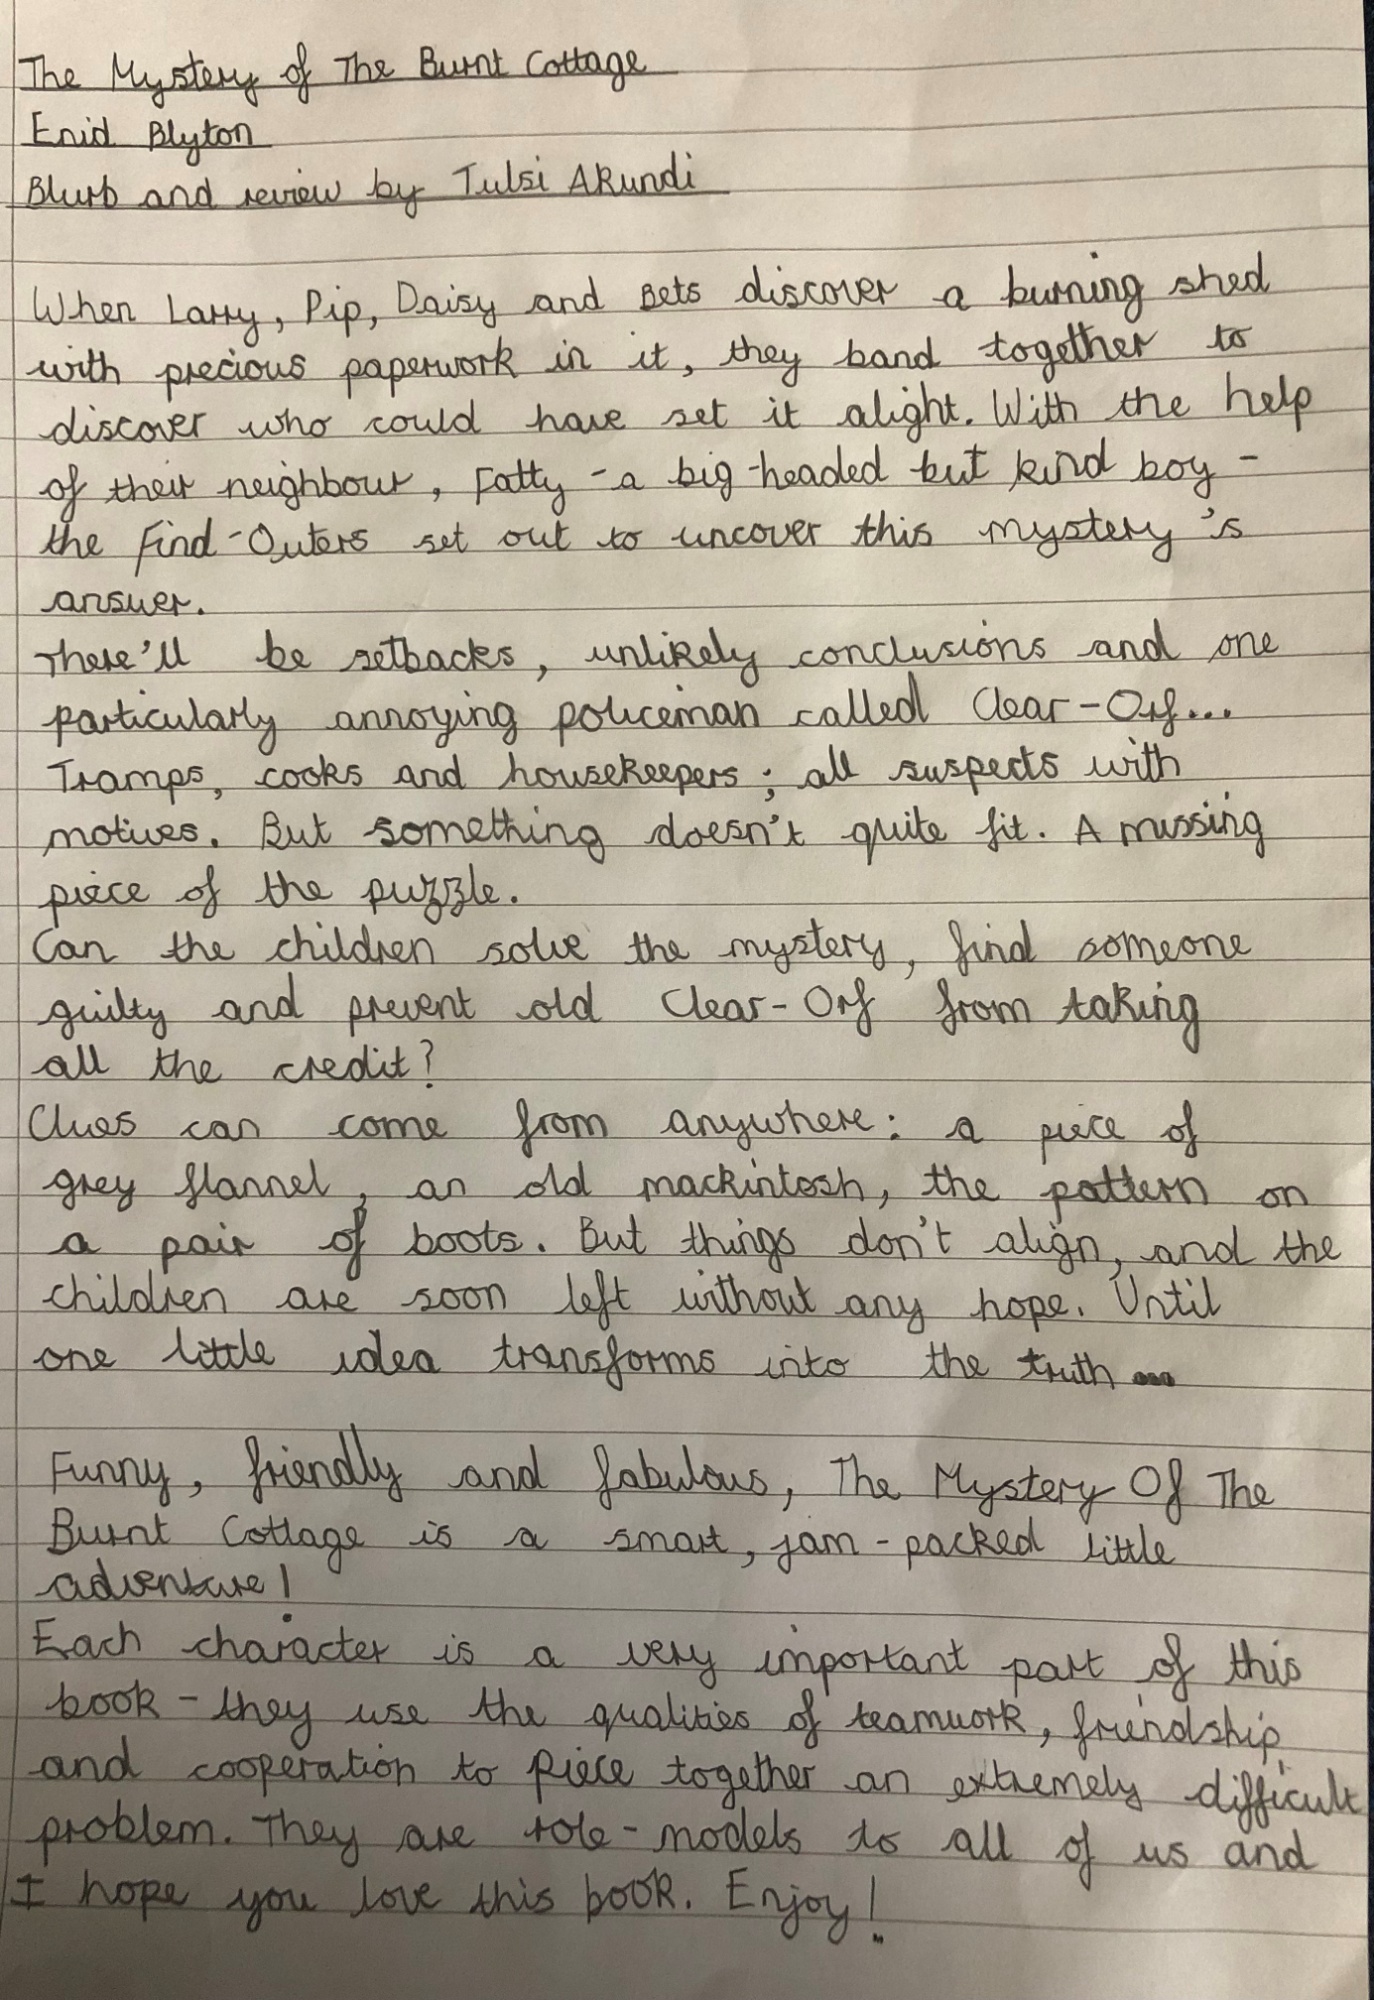 The Mystery of The Burnt Cottage
Enid Blyton
Blurb and review by Tulsi Akundi
When Larry, Pip, Daisy and Bets discover a burning shed
with precious paperwork in it, they band together to
discover who could have set it alight. With the help
of their neighbour, Fatty - a big-headed but kind boy -
the Find-Outers set out to uncover this mystery's
answer.
There'll be setbacks, unlikely conclusions and one
particularly annoying policeman called Clear-Orf...
Tramps, cooks and housekeepers; all suspects with
motives. But something doesn't quite fit. A missing
piece of the puzzle.
Can the children solve the mystery, find someone
guilty and prevent old Clear-Orf from taking
all the credit?
Clues can come from anywhere: a piece of
grey flannel, an old mackintosh, the pattern on
a pair of boots. But things don't align, and the
children are soon left without any hope. Until
one little idea transforms into the truth...
Funny, friendly and fabulous, The Mystery Of The
Burnt Cottage is a smart, jam-packed little
adventure!
Each character is a very important part of this
book - they use the qualities of teamwork, friendship
and cooperation to piece together an extremely difficult
problem. They are role-models to all of us and
I hope you love this book. Enjoy!